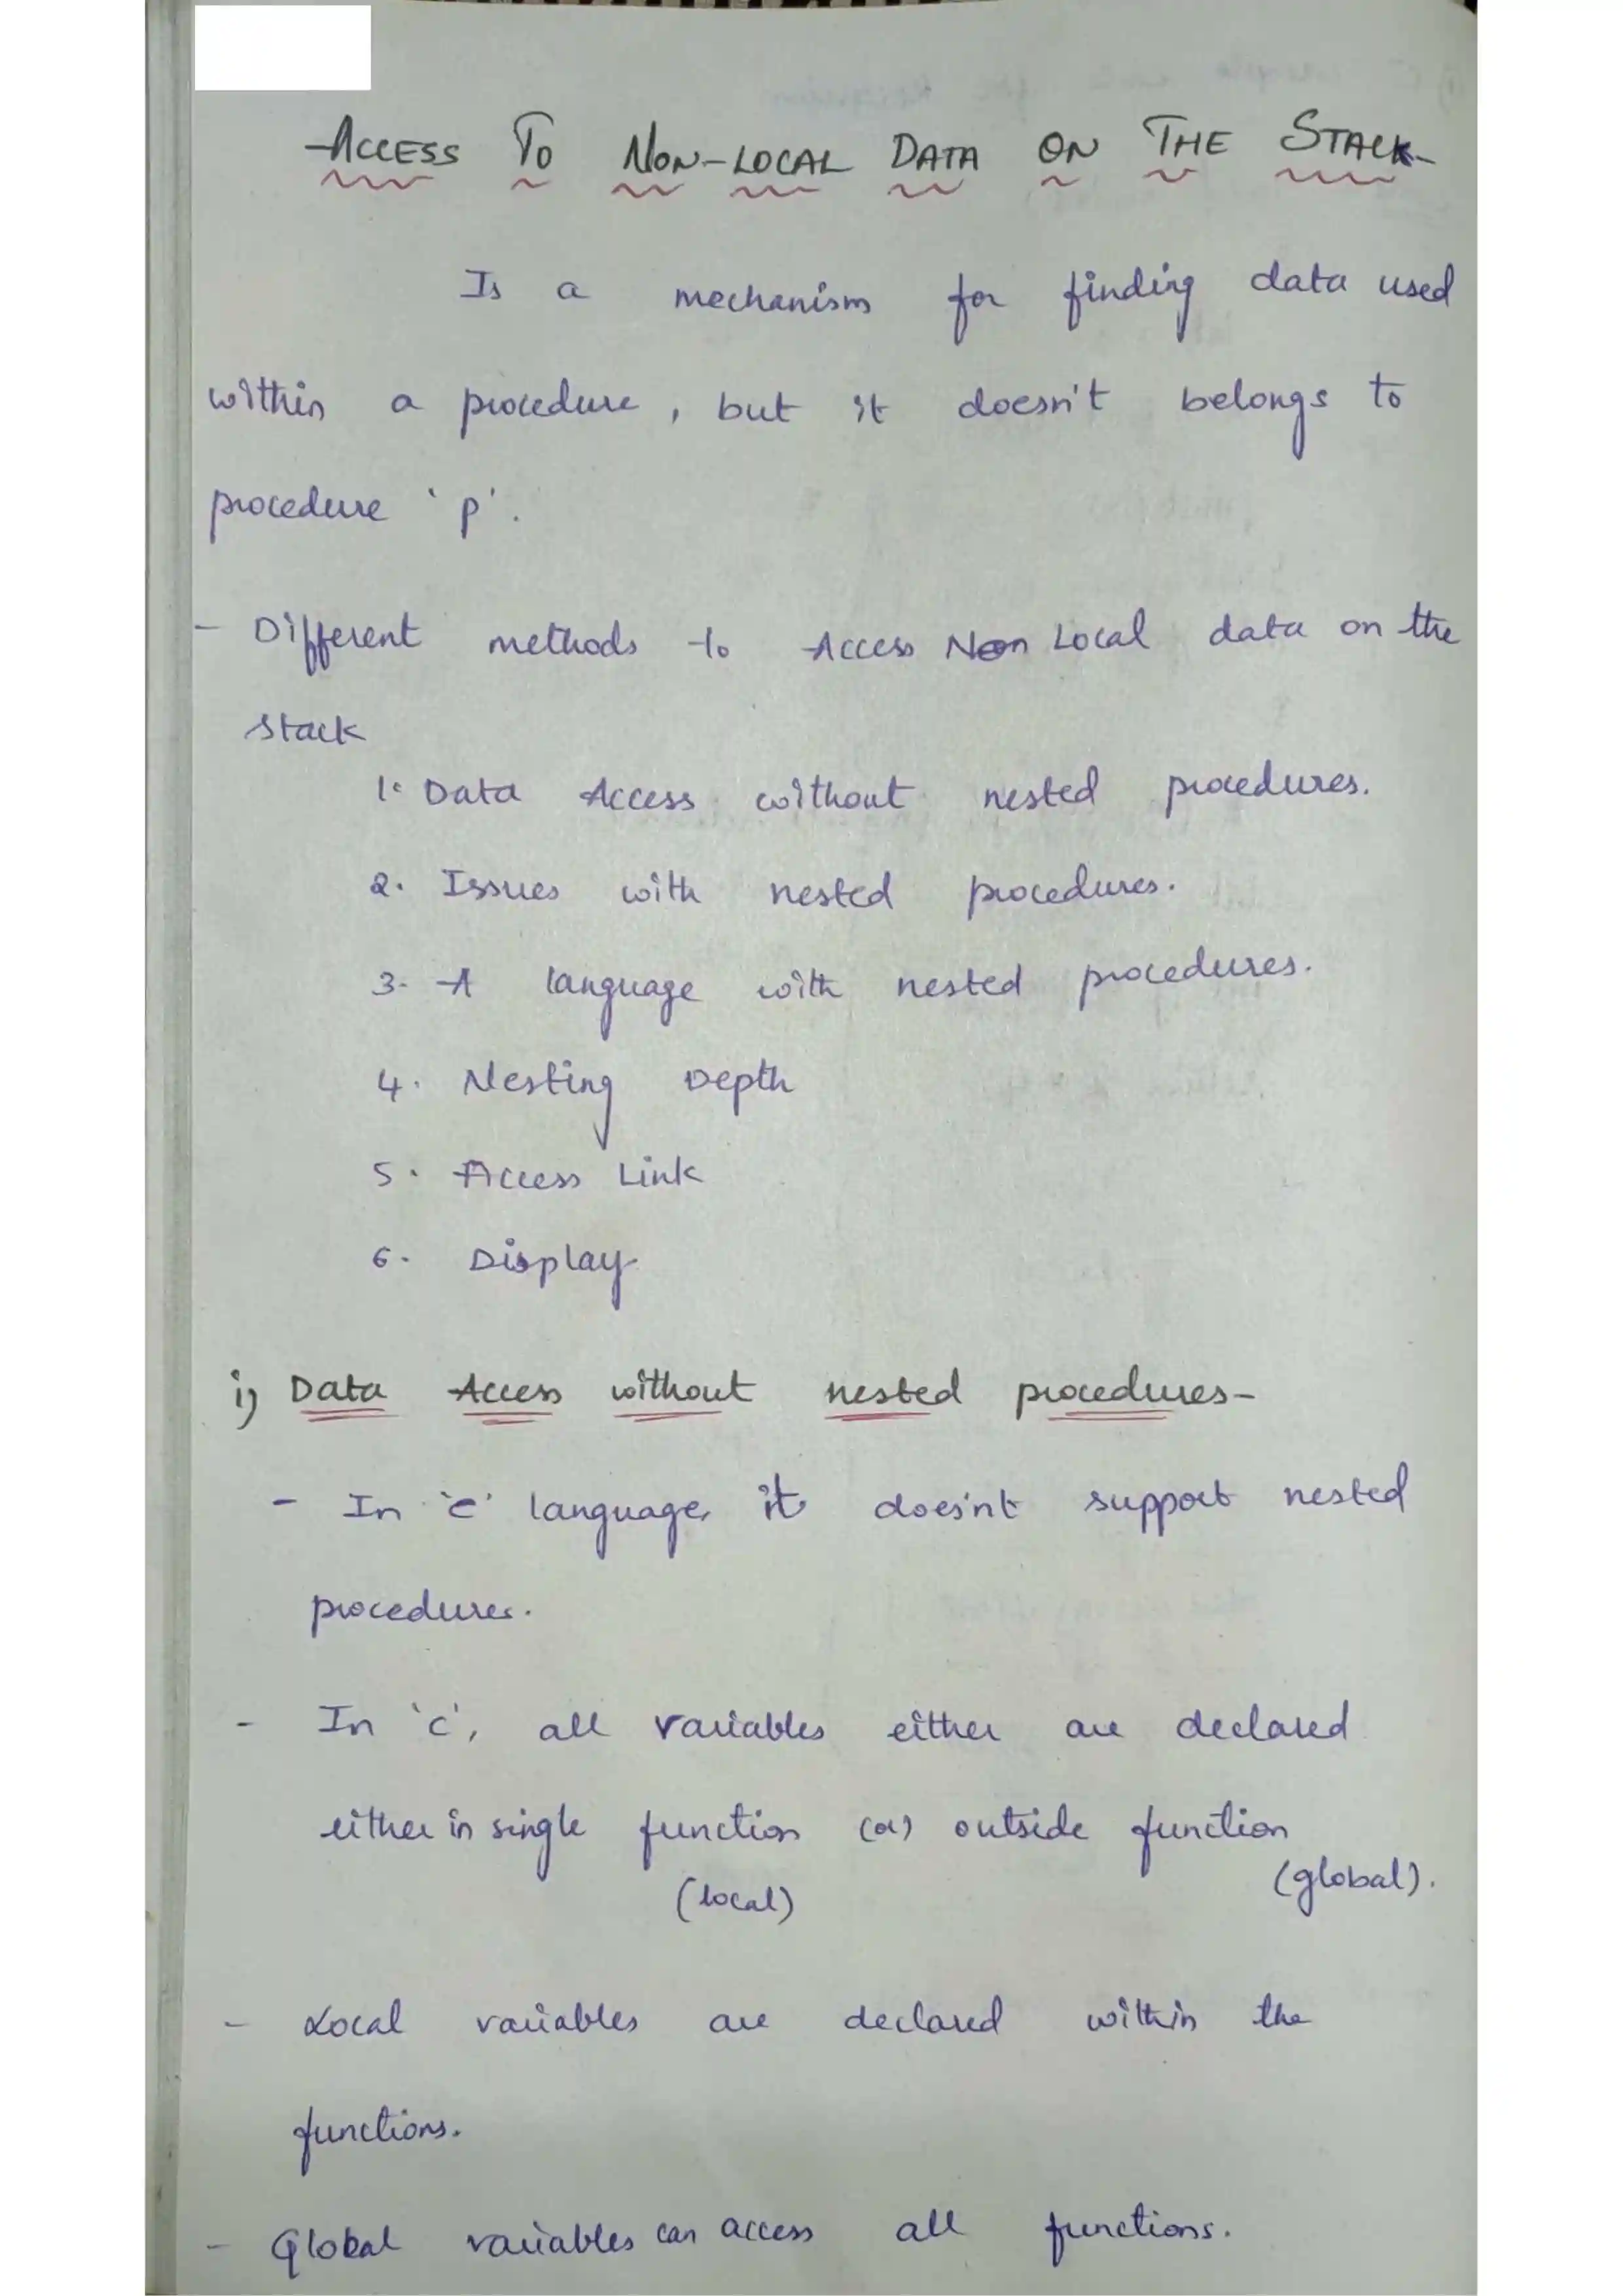 ACCESS TO NON-LOCAL DATA ON THE STACK-
Is a mechanism for finding data used
within a procedure, but it doesn't belongs to
procedure 'p'.
- Different methods to Access Non Local data on the
stack
1. Data Access without nested procedures.
2. Issues with nested procedures.
3. A language with nested procedures.
4. Nesting Depth
5. Access Link
6. Display
i) Data Access without nested procedures-
- In 'c' language, it does'nt support nested
procedures.
- In 'c', all variables either are declared
either in single function (or) outside function
(local) (global).
- Local variables are declared within the
functions.
- Global variables can access all functions.